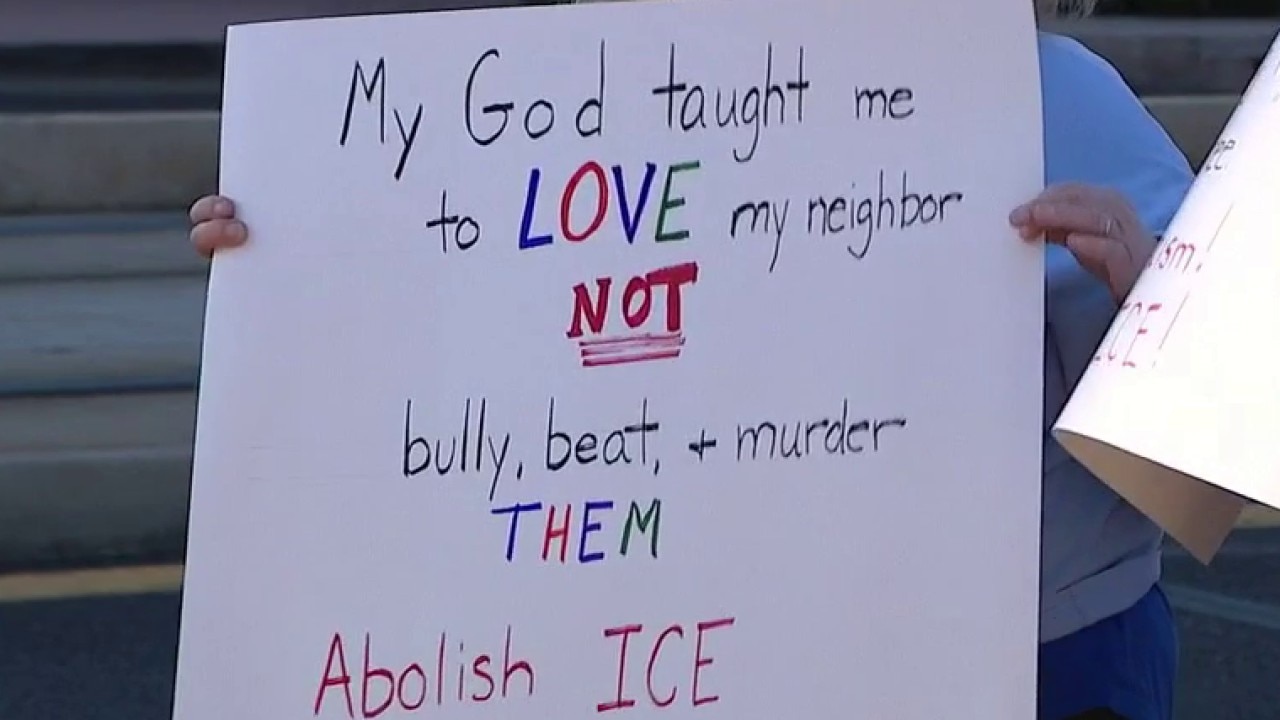 My God taught me
to LOVE my neighbor
NOT
bully, beat, + murder
THEM
Abolish ICE
ICE!